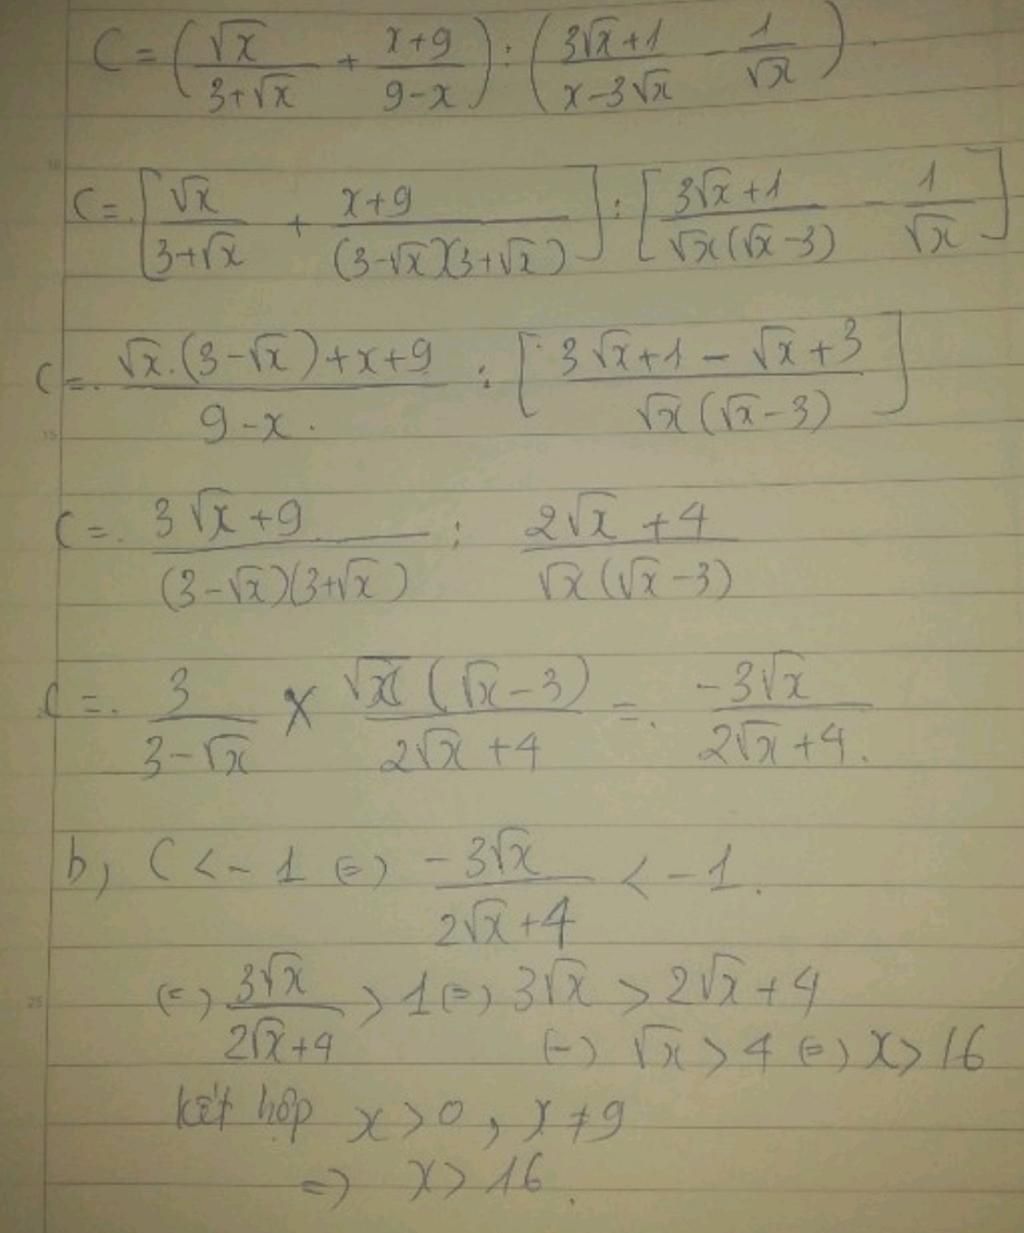 C = (√x/(3+√x) + (x+9)/(9-x)) : ((3√x+1)/(x-3√x) - 1/√x)
C = [√x/(3+√x) + (x+9)/((3-√x)(3+√x))] : [(3√x+1)/(√x(√x-3)) - 1/√x]
C = (√x.(3-√x)+x+9)/(9-x) : [(3√x+1-√x+3)/(√x(√x-3))]
C = (3√x+9)/((3-√x)(3+√x)) : (2√x+4)/(√x(√x-3))
C = 3/(3-√x) × (√x(√x-3))/(2√x+4) = (-3√x)/(2√x+4).
b, C < -1 (=) (-3√x)/(2√x+4) < -1.
(=) (3√x)/(2√x+4) > 1 (=) 3√x > 2√x+4
(=) √x > 4 (=) x > 16
kết hợp x > 0, x ≠ 9
=) x > 16.